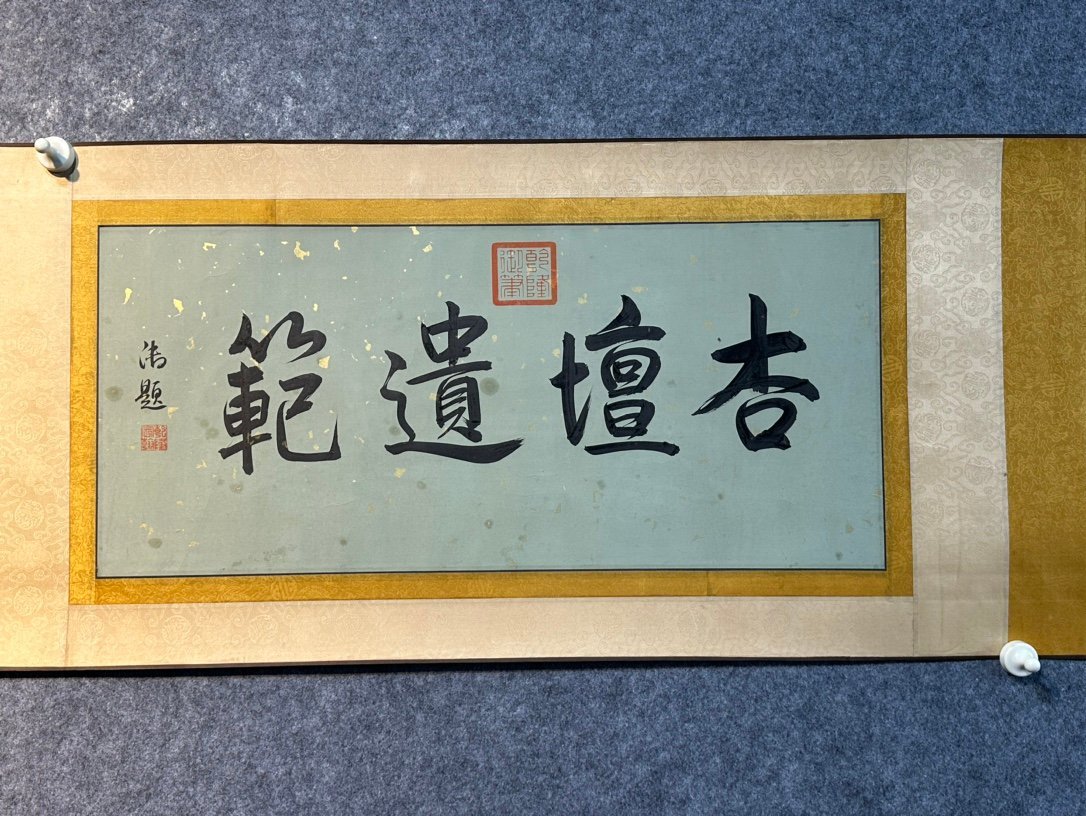 杏壇遺範
乾隆
御筆
御題